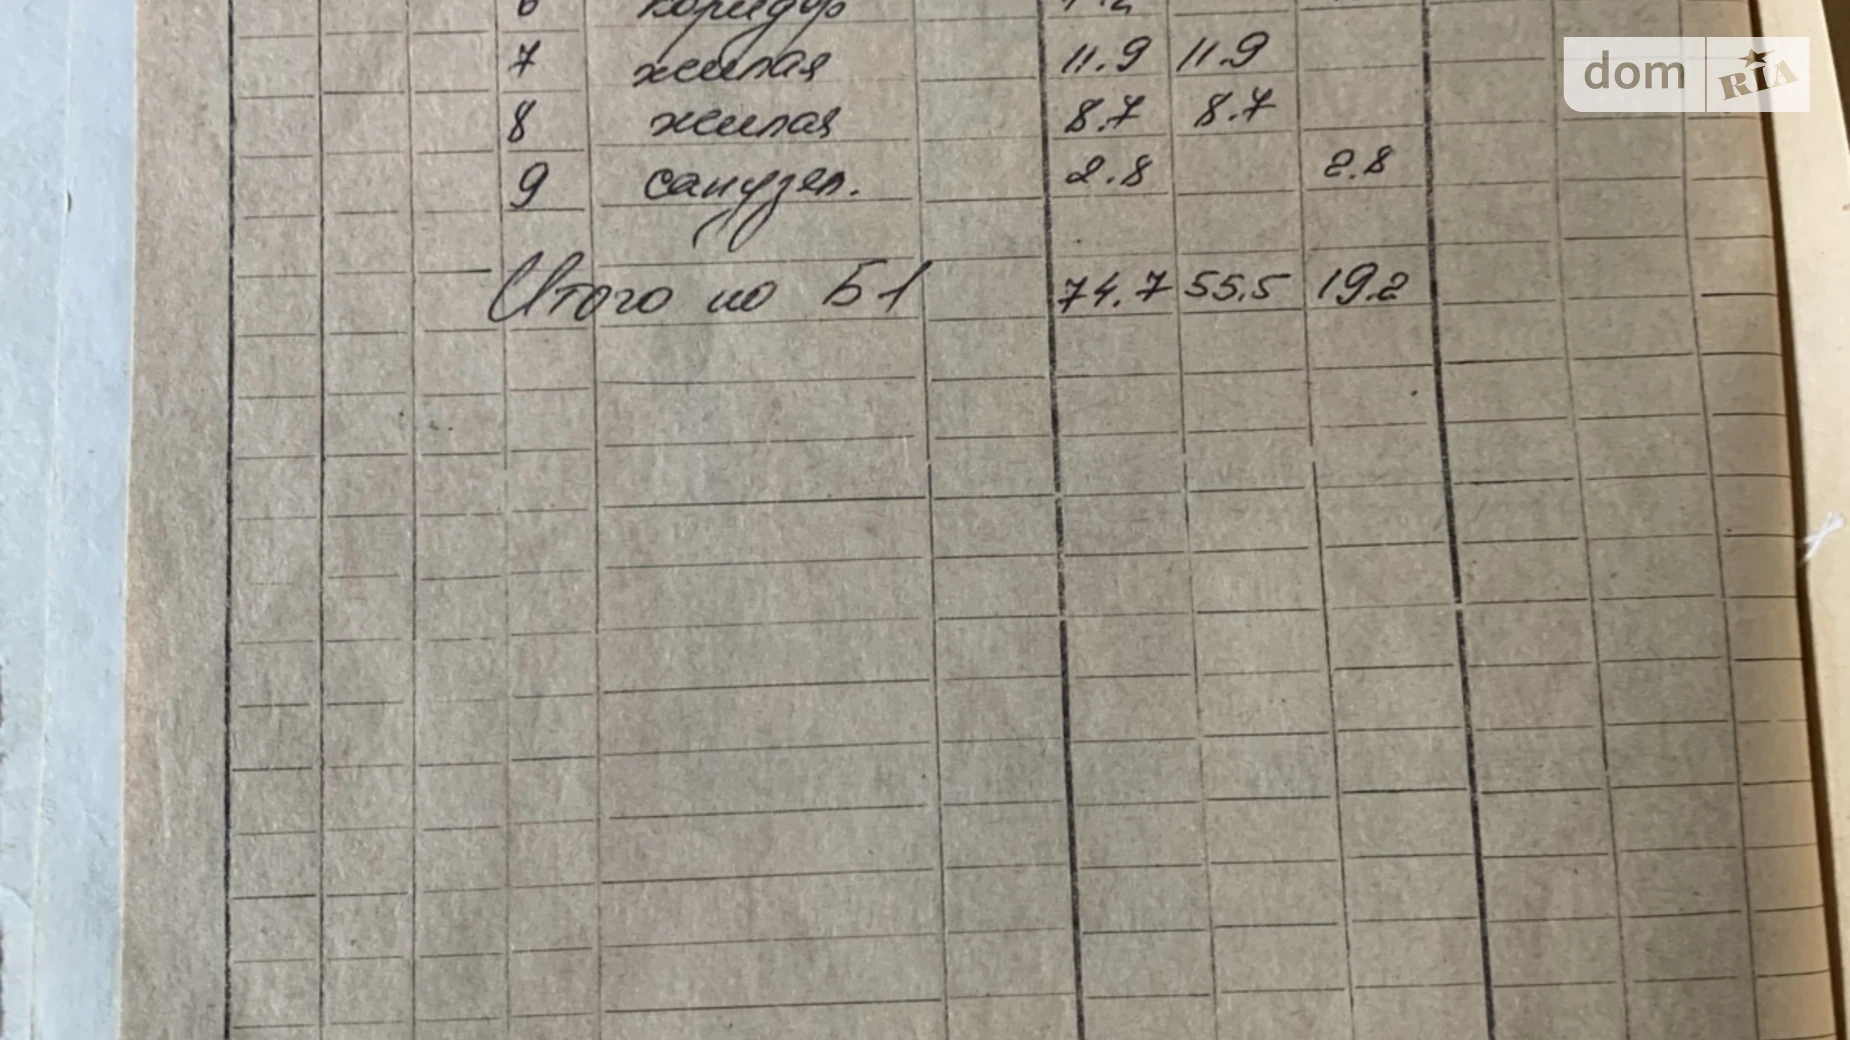 6 коридор
7 жилая 11.9 11.9
8 жилая 8.7 8.7
9 санузел. 2.8 2.8
Итого по Б1 74.7 55.5 19.2
dom RIA